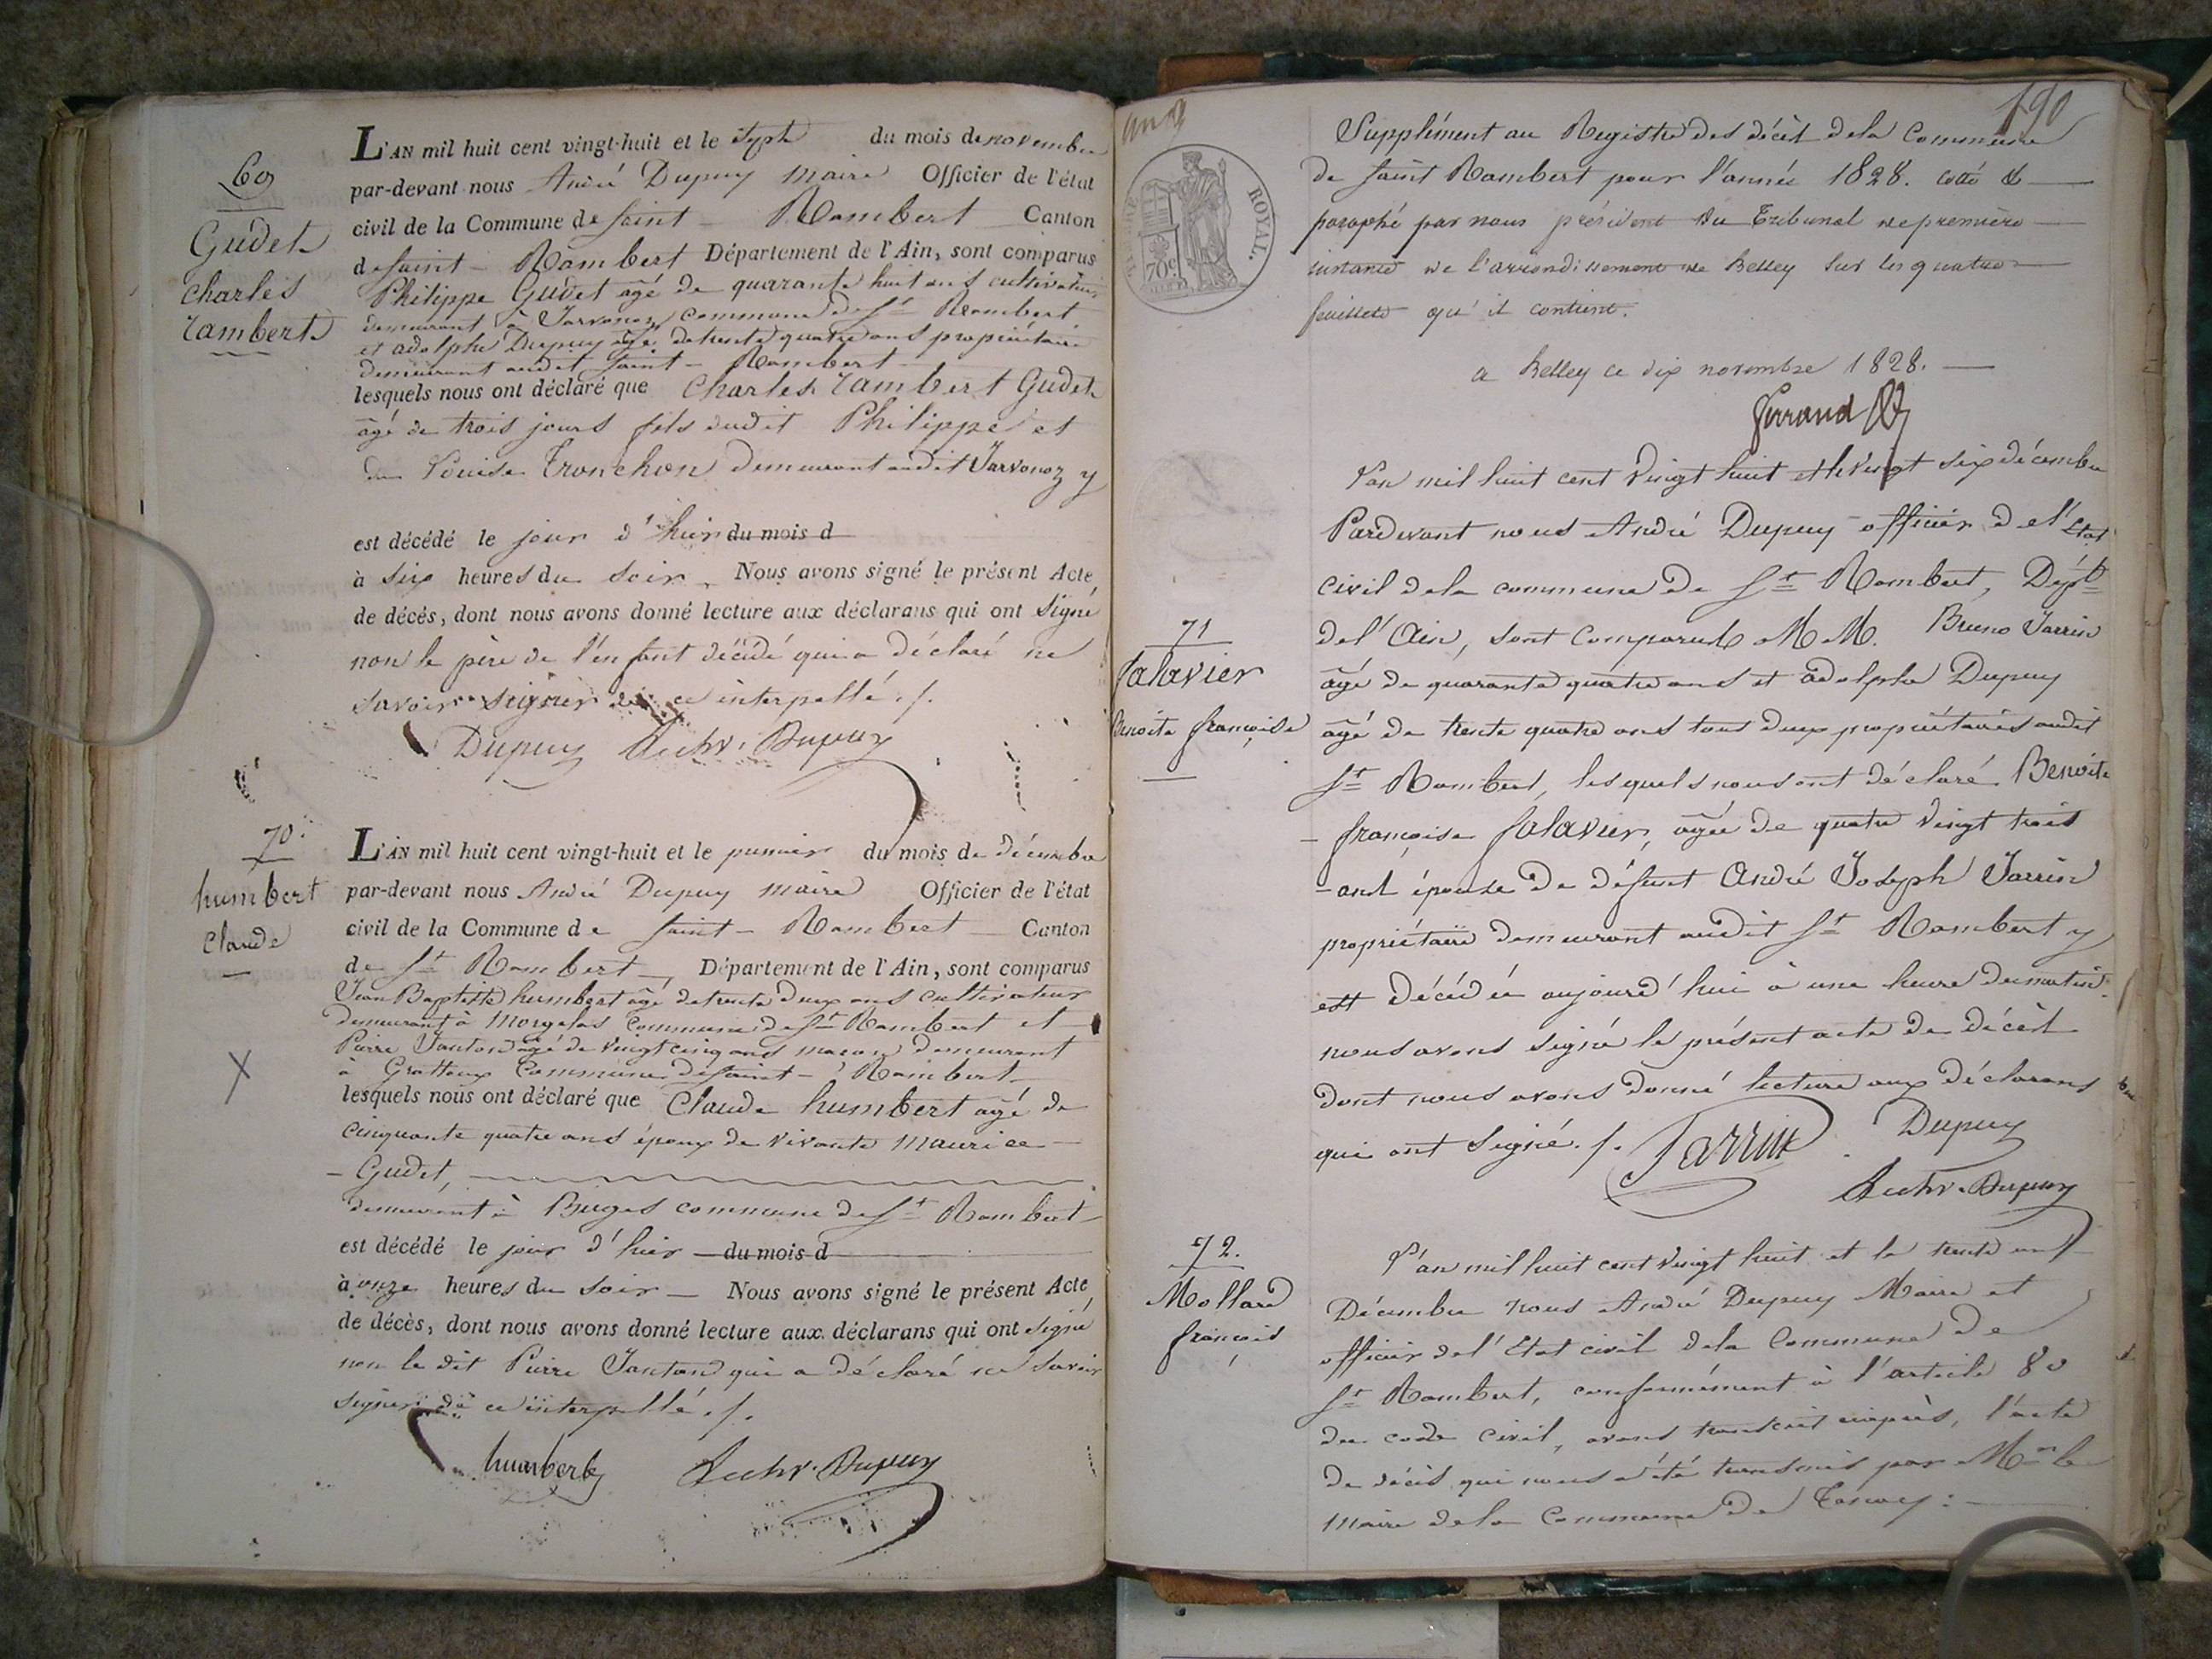 69
Gudet
Charles
Rambert
L'AN mil huit cent vingt-huit et le sept du mois de novembre
par-devant nous André Dupuy Maire Officier de l'état
civil de la Commune de Saint - Rambert Canton
de Saint - Rambert Département de l'Ain, sont comparus
Philippe Gudet agé de quarante huit ans cultivateur
demeurant à Jarvonoz commune de St Rambert
et adolphe Dupuy agé de trente quatre ans propriétaire
demeurant audit Saint - Rambert
lesquels nous ont déclaré que Charles Rambert Gudet
âgé de trois jours fils dudit Philippe et
de Louise Tronchon demeurant audit Jarvonoz y
est décédé le jour d'hier du mois d
à six heures du soir. Nous avons signé le présent Acte
de décés, dont nous avons donné lecture aux déclarans qui ont signé
non le père de l'enfant décédé qui a déclaré ne
savoir signer de ce interpellé ./.
Dupuy Dupuy
70.
humbert
Claude
X
L'AN mil huit cent vingt-huit et le premier du mois de décembre
par-devant nous André Dupuy Maire Officier de l'état
civil de la Commune de Saint - Rambert Canton
de St Rambert, Département de l'Ain, sont comparus
Jean Baptiste humbert agé de trente deux ans cultivateur
demeurant à Morgelas commune de St Rambert et
Pierre Jantond agé de vingt cinq ans maçon demeurant
à Grattoux Commune de Saint - Rambert
lesquels nous ont déclaré que Claude humbert agé de
cinquante quatre ans époux de vivante Maurice
- Gudet,
demeurant à Buges commune de St Rambert
est décédé le jour d'hier du mois d
à onze heures du soir - Nous avons signé le présent Acte
de décès, dont nous avons donné lecture aux déclarans qui ont signé
non le dit Pierre Jantond qui a déclaré ne savoir
signer de ce interpellé ./.
humbert Dupuy
190
TIMBRE ROYAL.
70c
Supplément au Registre des décès de la Commune
de Saint Rambert pour l'année 1828. cotté &
paraphé par nous président du Tribunal de première
instance de l'arrondissement de Belley sur les quatre
feuillets qu'il contient.
a Belley ce dix novembre 1828.
Ferrand
71
Salavier
Benoite françoise
L'an mil huit cent vingt huit et le vingt six décembre
Pardevant nous André Dupuy officier de l'Etat
civil de la commune de St Rambert, Dépt
de l'Ain, sont comparus M M. Bruno Jarrin
âgé de quarante quatre ans et adolphe Dupuy
âgé de trente quatre ans tous deux propriétaires audit
St Rambert, lesquels nous ont déclaré Benoite
- françoise Salavier, agée de quatre vingt trois
- ans épouse de défunt André Joseph Jarrin
propriétaire demeurant audit St Rambert y
est décédée aujourd'hui à une heure du matin.
nous avons signé le présent acte de décès
dont nous avons donné lecture aux déclarans
qui ont signé ./. Jarrin Dupuy
Dupuy
72.
Mollard
françois
L'an mil huit cent vingt huit et le trente un
Décembre nous André Dupuy Maire et
officier de l'Etat civil de la Commune de
St Rambert, conformément à l'article 80
du code civil, avons transcrit ciaprès, l'acte
de décès qui nous a été transmis par Mr le
Maire de la Commune de